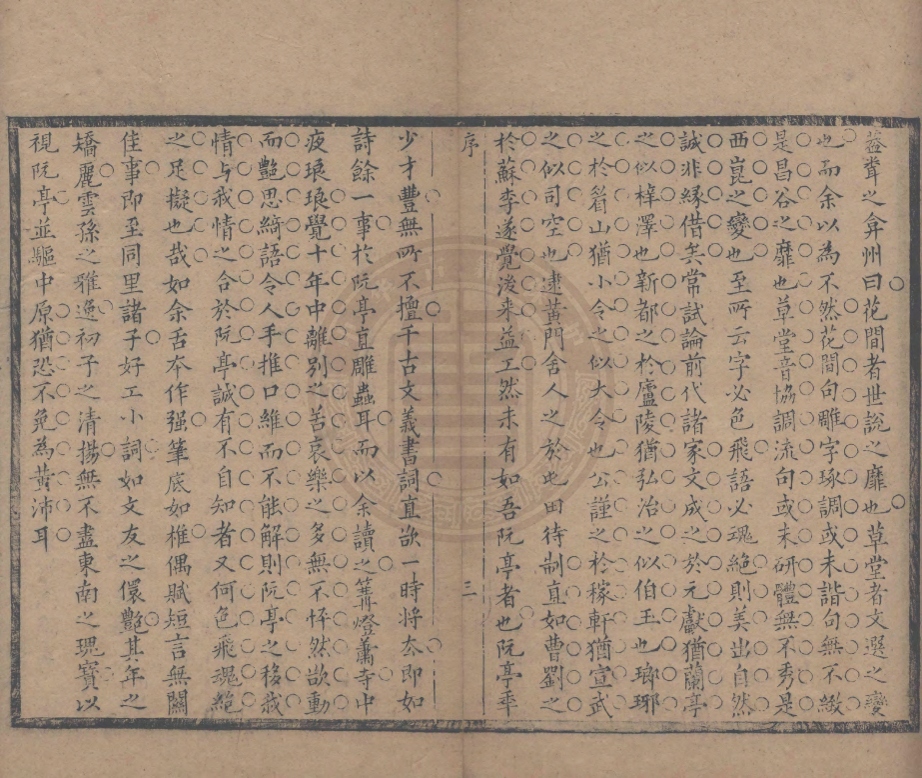 益聳之弇州曰花間者世說之靡也草堂者文選之變
也而余以為不然花間句雕字琢調或未諧句無不緻
是昌谷之靡也草堂音協調流句或未研體無不秀是
西崑之變也至所云字必色飛語必瑰絕則美出自然
誠非緣借矣常試論前代諸家文成之於元獻猶蘭亭
之似梓澤也新都之於廬陵猶弘治之似伯玉也瑯琊
之於眉山猶小令之似大令也公謹之於稼軒猶宣武
之似司空也逮黃門舍人之於屯田待制直如曹劉之
於蘇李遂覺後來益工然未有如吾阮亭者也阮亭年
序 三
少才豐無所不擅千古文義書詞直欲一時將夲即如
詩餘一事於阮亭直雕蟲耳而以余讀之篝燈蕭寺中
疲琅琅覺十年中離別之苦哀樂之多無不怦然欲動
而艷思綺語令人手推口維而不能解則阮亭之移我
情与我情之合於阮亭誠有不自知者又何色飛魂絕
之足擬也哉如余舌本作强筆底如椎偶賦短言無關
佳事即至同里諸子好工小詞如文友之儇艷其年之
矯麗雲孫之雅逸初子之清揚無不盡東南之瑰寶以
視阮亭並驅中原猶恐不免為黃沛耳